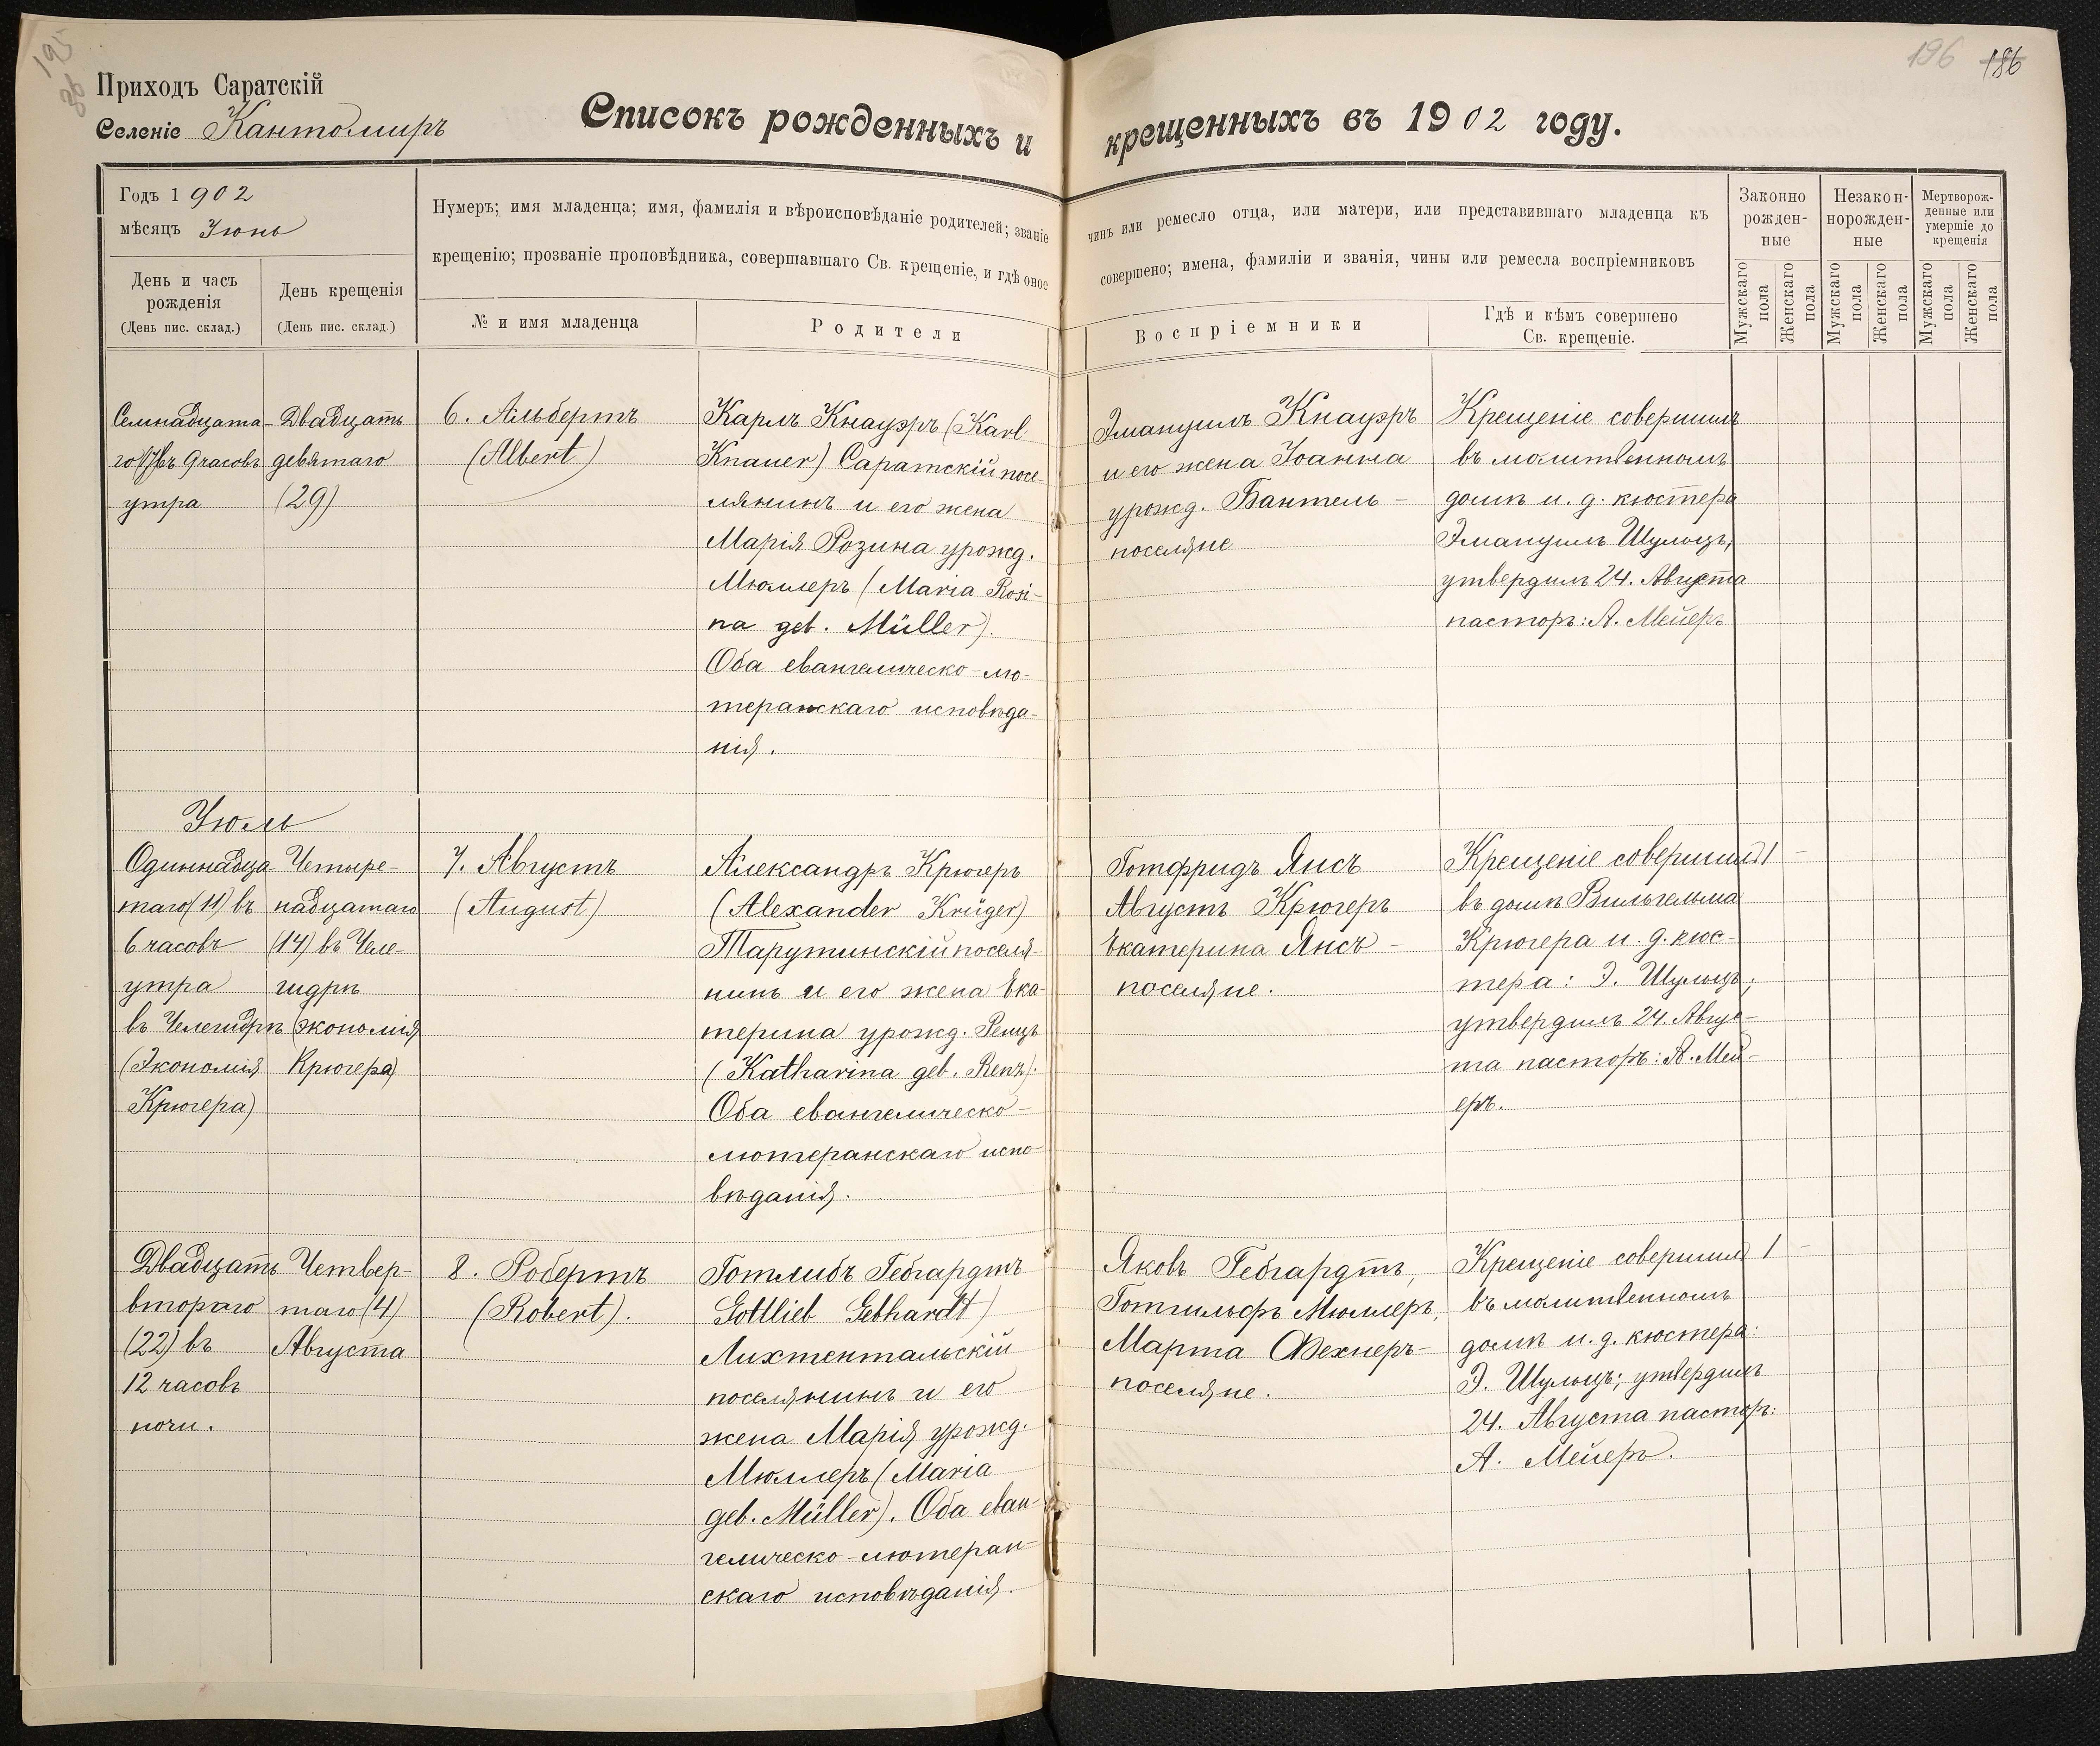 195
86
196 186
Приходъ Саратскій
Селеніе Кантомиръ
Списокъ рожденныхъ и крещенныхъ въ 1902 году.
Годъ 1902
мѣсяцъ Іюнь
День и часъ
рожденія
(День пис. склад.)
День крещенія
(День пис. склад.)
Нумеръ; имя младенца; имя, фамилія и вѣроисповѣданіе родителей; званіе
чинъ или ремесло отца, или матери, или представившаго младенца къ
крещенію; прозваніе проповѣдника, совершавшаго Св. крещеніе, и гдѣ оное
совершено; имена, фамиліи и званія, чины или ремесла воспріемниковъ
№ и имя младенца
Родители
Воспріемники
Гдѣ и кѣмъ совершено
Св. крещеніе.
Законно
рожден-
ные
Незакон-
норожден-
ные
Мертворож-
денные или
умершіе до
крещенія
Мужскаго
пола
Женскаго
пола
Мужскаго
пола
Женскаго
пола
Мужскаго
пола
Женскаго
пола
Семнадцата-
го (17) въ 9 часовъ
утра
Двадцать
девятаго
(29)
6. Альбертъ
(Albert)
Карлъ Кнауэръ (Karl
Knauer) Саратскій посе-
лянинъ и его жена
Марія Розина урожд.
Мюллеръ (Maria Rosi-
na geb. Müller).
Оба евангелическо-лю-
теранскаго исповѣда-
нія.
Эмануилъ Кнауэръ
и его жена Іоанна
урожд. Бантель -
поселяне
Крещеніе совершилъ
въ молитвенномъ
домѣ и. д. кюстера
Эмануилъ Шульцъ,
утвердилъ 24. Августа
пасторъ: А. Мейеръ
Іюль
Одиннадца-
таго (11) въ
6 часовъ
утра
въ Челегидрѣ
(Экономія
Крюгера)
Четыре-
надцатаго
(14) въ Челе-
гидрѣ
(экономія
Крюгера)
7. Августъ
(August)
Александръ Крюгеръ
(Alexander Krüger)
Тарутинскій поселя-
нинъ и его жена Ека-
терина урожд. Ренцъ
(Katharina geb. Renz).
Оба евангелическо-
лютеранскаго испо-
вѣданія.
Готфридъ Янсъ
Августъ Крюгеръ
Екатерина Янсъ -
поселяне.
Крещеніе совершилъ
въ домѣ Вильгельма
Крюгера и. д. кюс-
тера: Э. Шульцъ;
утвердилъ 24. Авгус-
та пасторъ: А. Мей-
еръ.
1 -
Двадцать
втораго
(22) въ
12 часовъ
ночи.
Четвер-
таго (4)
Августа
8. Робертъ
(Robert).
Готлибъ Гебгардтъ
Gottlieb Gebhardt)
Лихтентальскій
поселянинъ и его
жена Марія урожд.
Мюллеръ (Maria
geb. Müller). Оба еван-
гелическо-лютеран-
скаго исповѣданія.
Яковъ Гебгардтъ,
Готгильфъ Мюллеръ,
Марта Фехнеръ -
поселяне.
Крещеніе совершилъ
въ молитвенномъ
домѣ и. д. кюстера:
Э. Шульцъ; утвердилъ
24. Августа пасторъ:
А. Мейеръ.
1 -